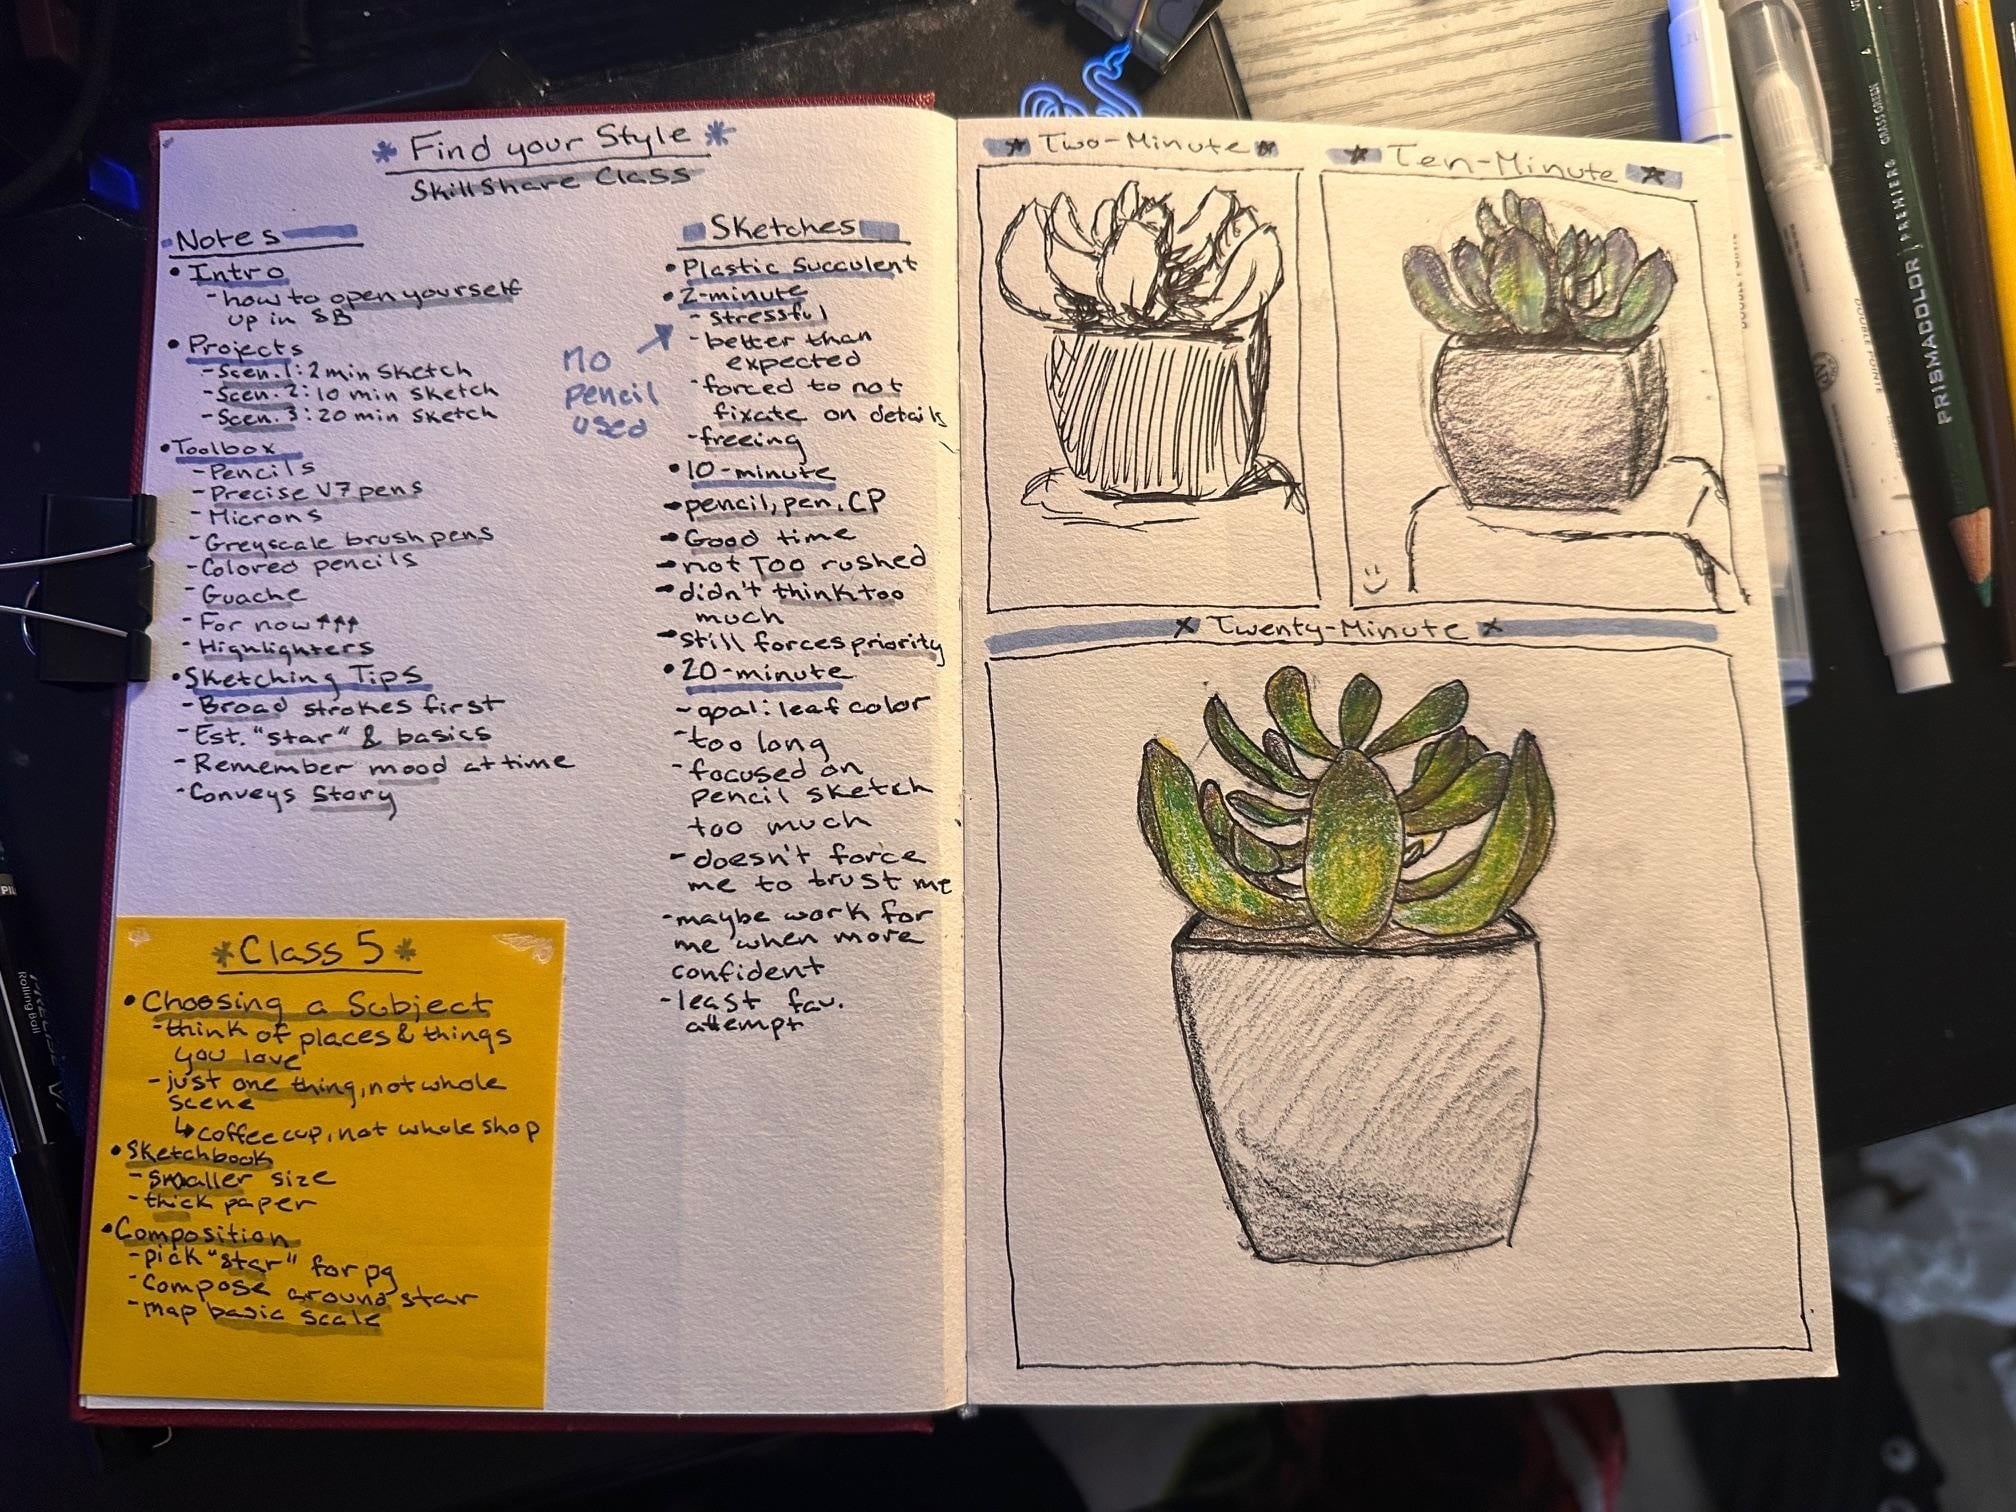 * Find your Style *
SkillShare Class
Notes
• Intro
- how to open yourself
up in SB
• Projects
- Scen. 1: 2 min sketch
- Scen. 2: 10 min sketch
- Scen. 3: 20 min sketch
• Toolbox
- Pencils
- Precise V7 pens
- Microns
- Greyscale brush pens
- Colored pencils
- Guache
- For now ↑↑↑
- Highlighters
• Sketching Tips
- Broad strokes first
- Est. "star" & basics
- Remember mood at time
- Conveys Story
* Class 5 *
• Choosing a Subject
- think of places & things
you love
- just one thing, not whole
scene
↳ coffee cup, not whole shop
• Sketchbook
- smaller size
- thick paper
• Composition
- pick "star" for pg
- compose around star
- map basic scale
Sketches
• Plastic Succulent
• 2-minute
- stressful
- better than
expected
- forced to not
fixate on details
- freeing
no
pencil
used
• 10-minute
- pencil, pen, CP
- Good time
- not TOO rushed
- didn't think too
much
- still forces priority
• 20-minute
- goal: leaf color
- too long
- focused on
pencil sketch
too much
- doesn't force
me to trust me
- maybe work for
me when more
confident
- least fav.
attempt
★ Two-Minute ★
★ Ten-Minute ★
x Twenty-Minute x
PRISMACOLOR PREMIER GRASS GREEN
Rolling Ball